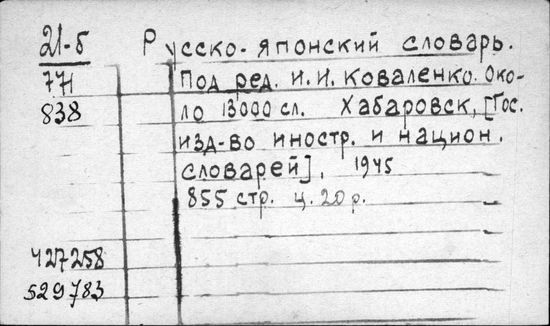 21-б Русско-японский словарь.
771 Под ред. И.И. Коваленко. Око-
838 ло 13000 сл. Хабаровск, [Гос.
изд-во иностр. и национ.
словарей], 1945
855 стр. ц. 20 р.
427258
529783